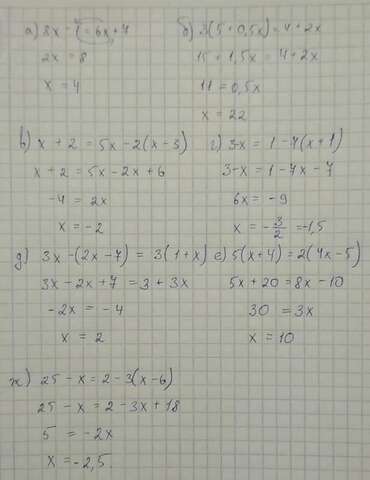 а) 8x - 1 = 6x + 7
2x = 8
x = 4
б) 3(5 + 0,5x) = 4 + 2x
15 + 1,5x = 4 + 2x
11 = 0,5x
x = 22
в) x + 2 = 5x - 2(x - 3)
x + 2 = 5x - 2x + 6
-4 = 2x
x = -2
г) 3-x = 1 - 7(x + 1)
3-x = 1 - 7x - 7
6x = -9
x = -3/2 = -1,5
д) 3x - (2x - 7) = 3(1 + x)
3x - 2x + 7 = 3 + 3x
-2x = -4
x = 2
е) 5(x + 4) = 2(4x - 5)
5x + 20 = 8x - 10
30 = 3x
x = 10
ж) 25 - x = 2 - 3(x - 6)
25 - x = 2 - 3x + 18
5 = -2x
x = -2,5.